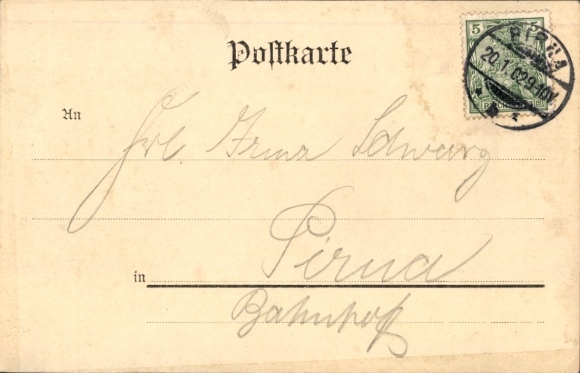 Postkarte
5
PIRNA
20.1.02 9-10V.
An
Frl. Irma Schwarz
Pirna
in
Bahnhof